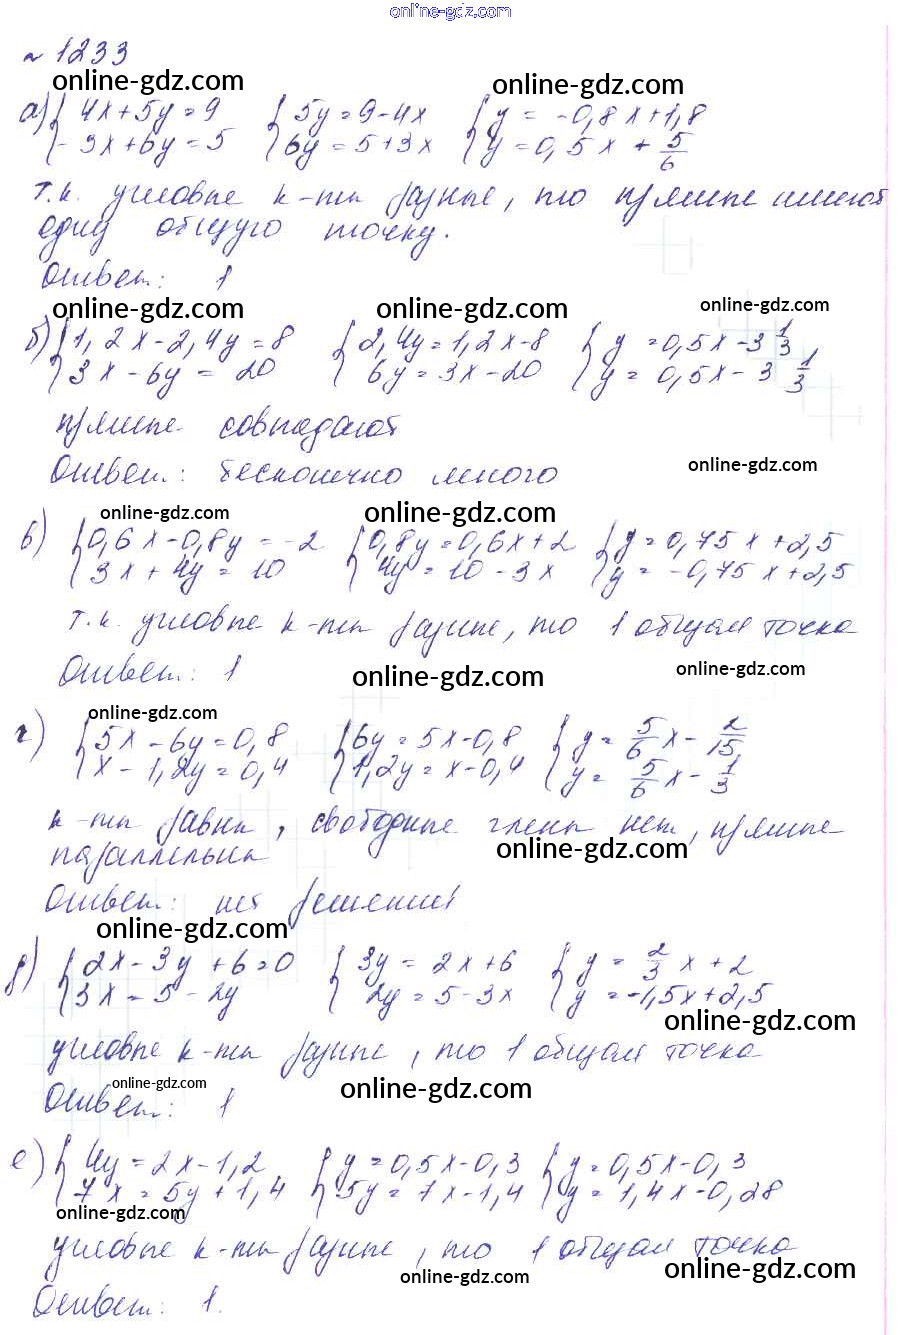 online-gdz.com
№ 1233
online-gdz.com online-gdz.com
а) { 4x+5y=9 { 5y=9-4x { y = -0,8x+1,8
-3x+6y=5 6y=5+3x y=0,5x + 5/6
т.к. угловые к-ты разные, то прямые имеют
одну общую точку.
Ответ: 1
online-gdz.com online-gdz.com online-gdz.com
б) { 1,2x-2,4y=8 { 2,4y=1,2x-8 { y=0,5x-3 1/3
3x-6y=20 6y=3x-20 y=0,5x-3 1/3
прямые совпадают
Ответ: бесконечно много
online-gdz.com
online-gdz.com online-gdz.com
в) { 0,6x-0,8y=-2 { 0,8y=0,6x+2 { y=0,75x+2,5
3x+4y=10 4y=10-3x y=-0,75x+2,5
т.к. угловые к-ты разные, то 1 общая точка
Ответ: 1
online-gdz.com online-gdz.com
online-gdz.com
г) { 5x-6y=0,8 { 6y=5x-0,8 { y= 5/6 x - 2/15
x-1,2y=0,4 1,2y=x-0,4 y= 5/6 x - 1/3
к-ты равны, свободные члены нет, прямые
online-gdz.com
параллельны
Ответ: нет решений
online-gdz.com
д) { 2x-3y+6=0 { 3y=2x+6 { y= 2/3 x+2
3x=5-2y 2y=5-3x y=-1,5x+2,5
online-gdz.com
угловые к-ты разные, то 1 общая точка
online-gdz.com online-gdz.com
Ответ: 1
е) { 4y=2x-1,2 { y=0,5x-0,3 { y=0,5x-0,3
7x=5y+1,4 5y=7x-1,4 y=1,4x-0,28
online-gdz.com
угловые к-ты разные, то 1 общая точка
online-gdz.com online-gdz.com
Ответ: 1.